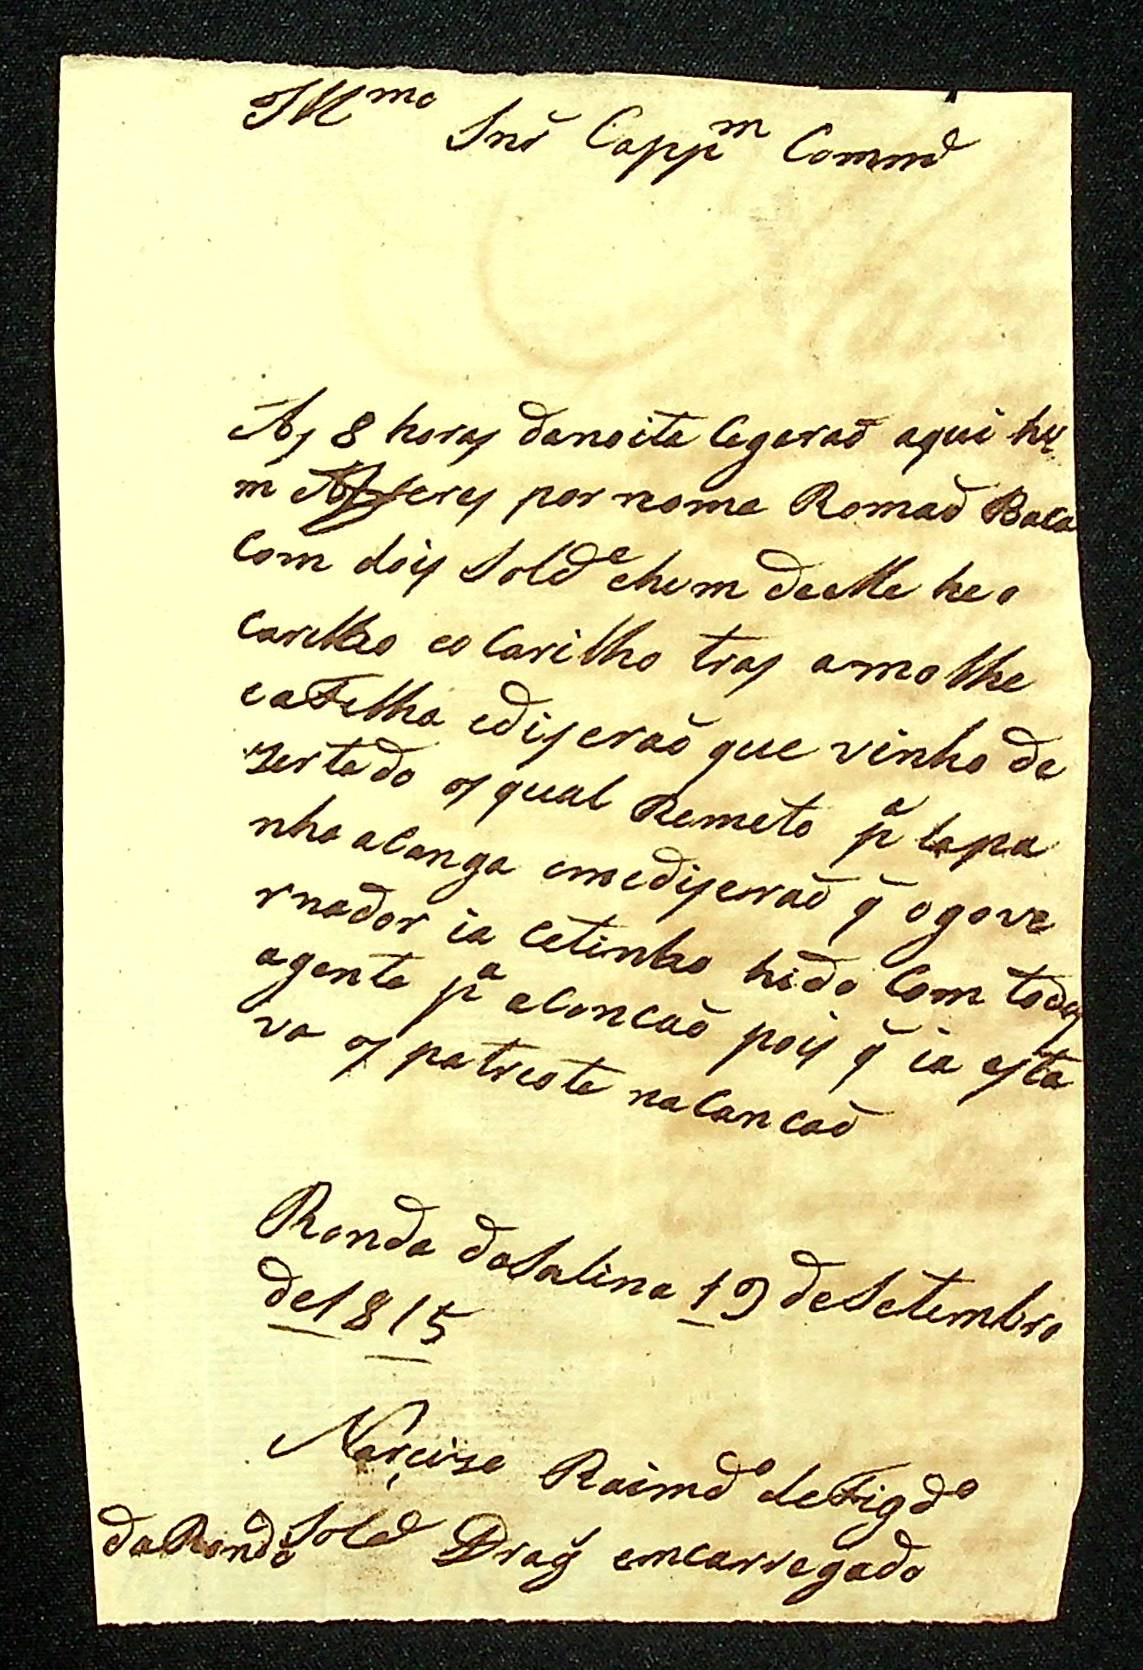 Illmo
Snr̃ Cappm Commd
As 8 horas danoite Cegeraõ aqui hu
m Alferes por nome Romaõ Baca
Com dois Soldᵉ ehum delle he o
Carilho eo Carilho tras amolhe
eafilha edigeraõ que vinho de
zertado os qual Remeto pª Capa
nha alanga emediseraõ q̃ ogove
rnador ia cetinho hido Com todas
agente pª aConcaõ pois q̃ ia esta
va os patreote naConcaõ
Ronda daSalina 19 deSetembro
de1815
Narcizo Raimdº deFigdº
Sold Drag̃ emcarregado
daRonda